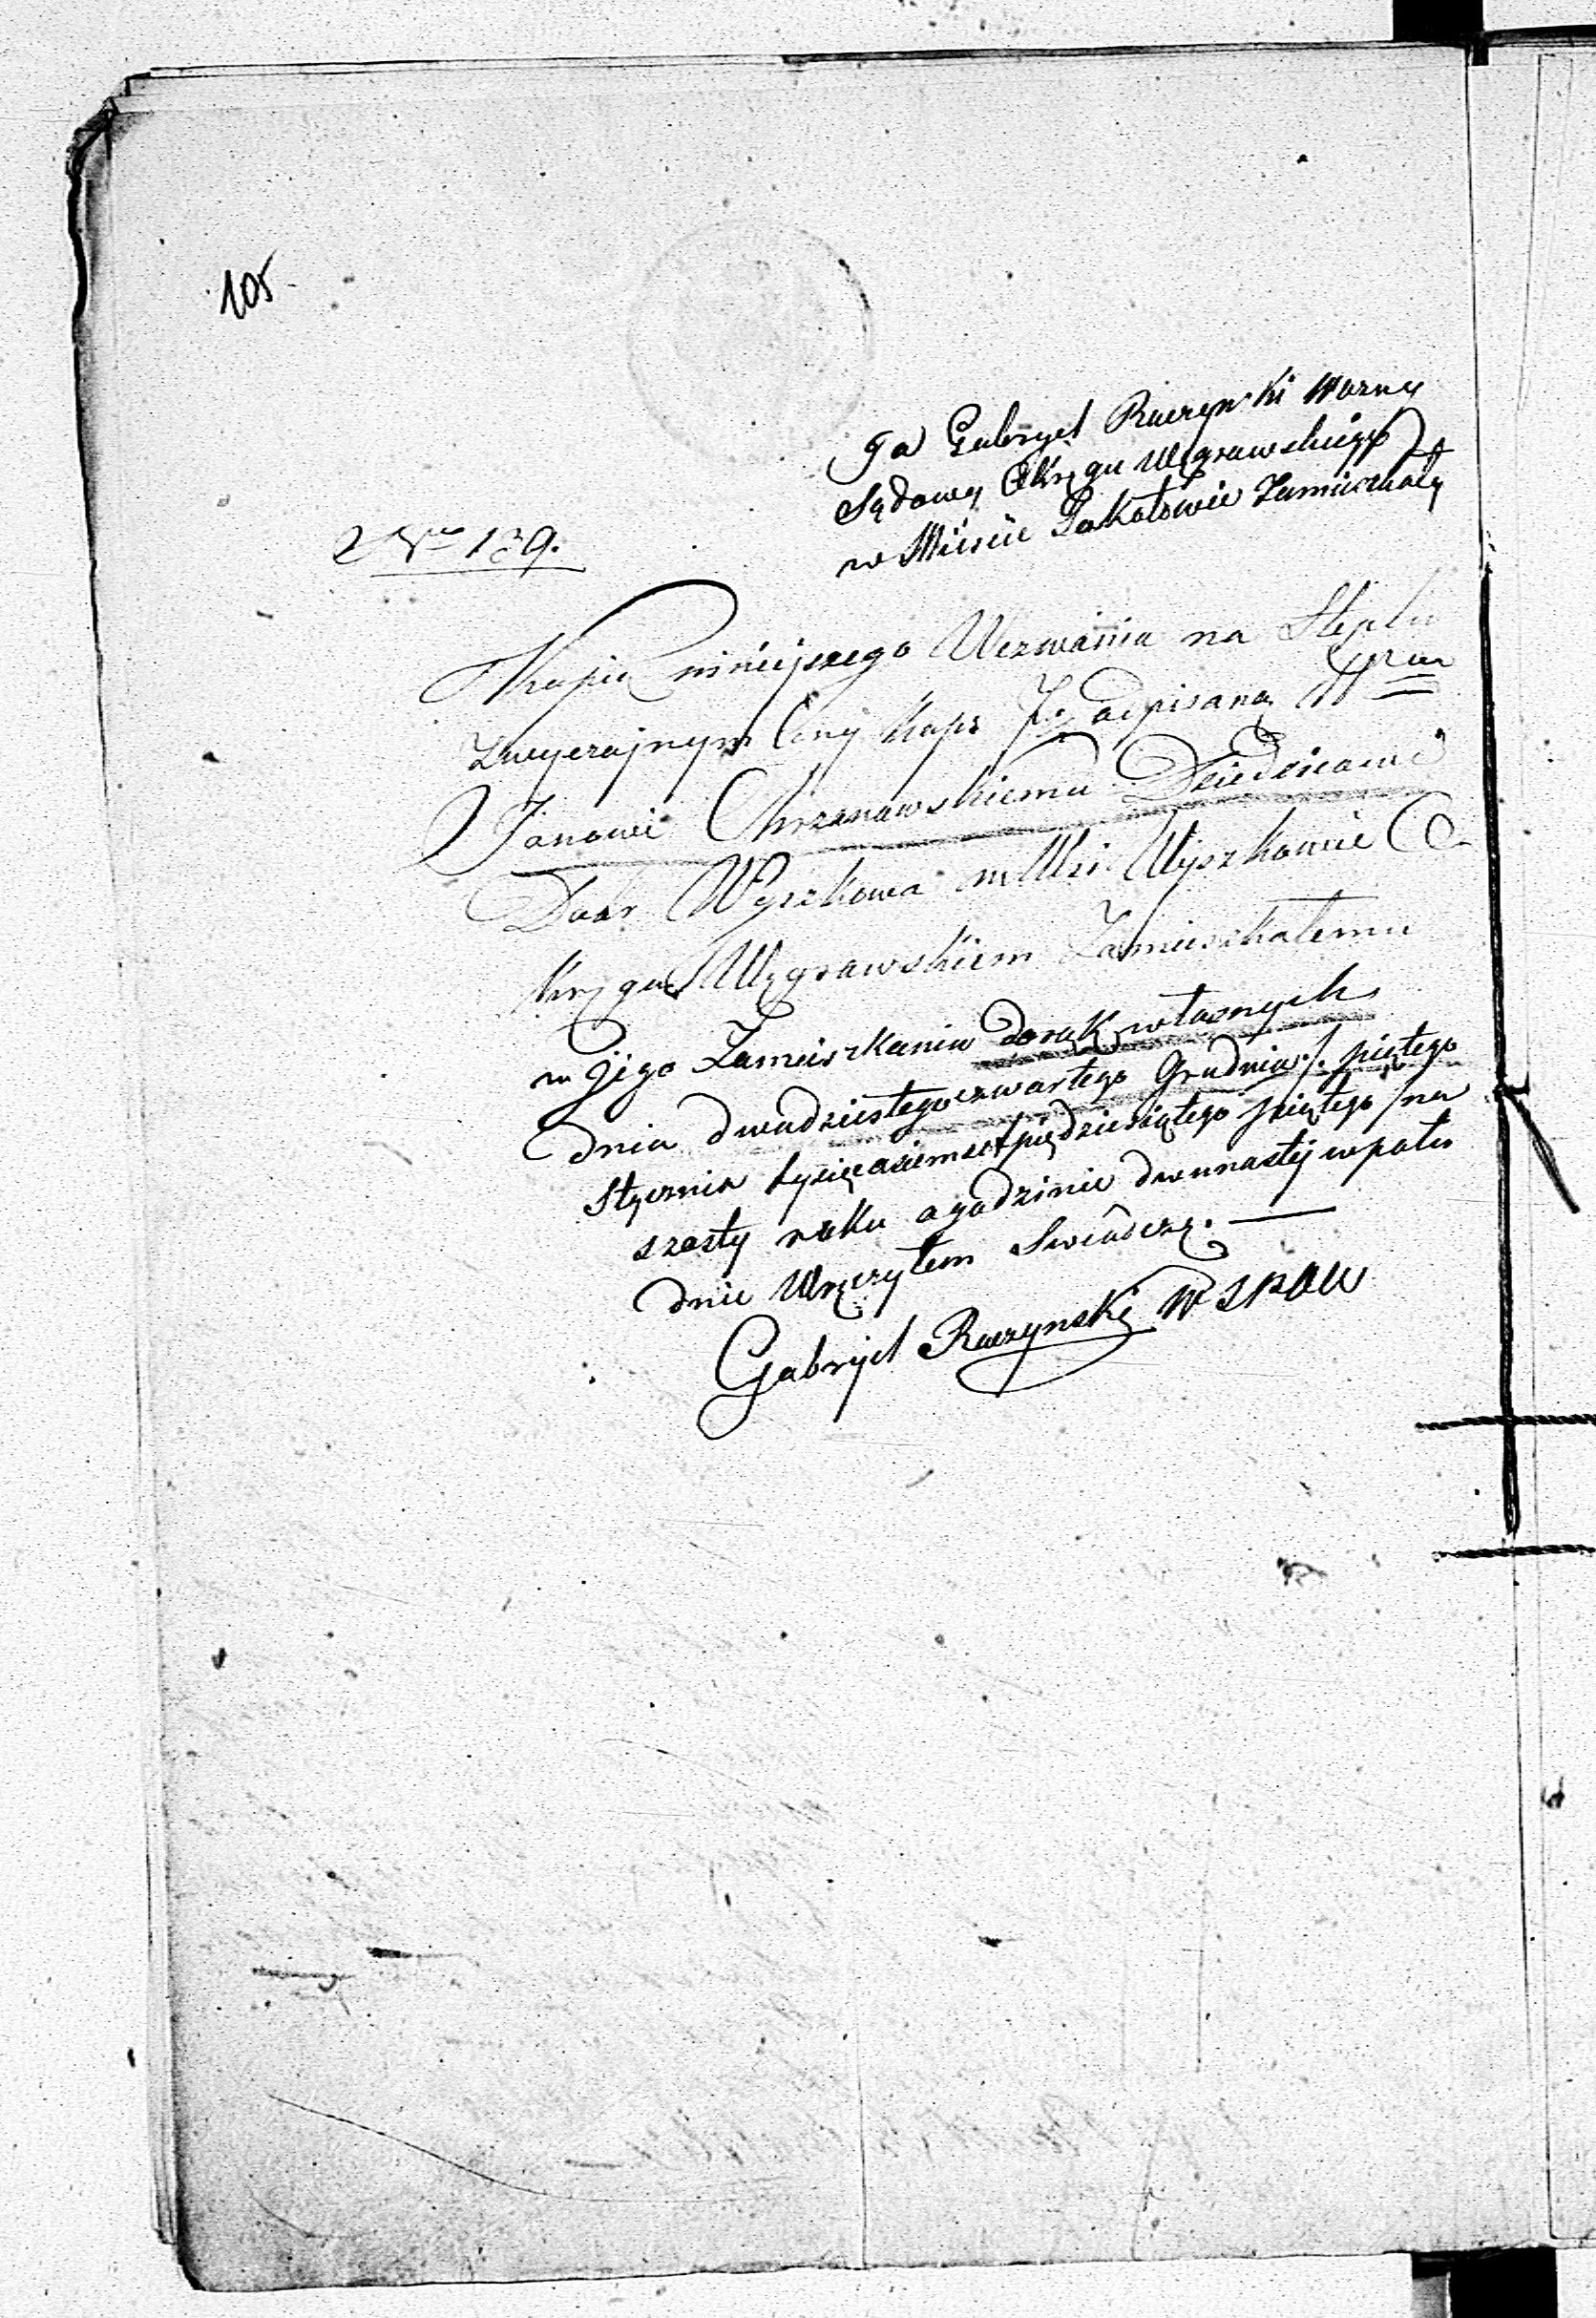 105
Ja Gabryel Raczynski Wozny
Sądowy Okręgu Węgrowskiego
w Mieście Sokołowie Zamieszkały
Nro 139.
Kopię niniejszego Wezwania na Steplu
Zwyczajnym Ceny Kop: 7½ odpisaną
Janowi Chrzanowskiemu Dziedzicowi
Dobr Wyszkowa w Wsi Wyszkowie O-
kręgu Węgrowskiem Zamieszkałemu
w Jego Zamieszkaniu do rąk własnych
dnia dwudziestegoczwartego Grudnia /. piątego
Stycznia tysiącosiemset pięćdziesiątego piątego / na
szosty roku o godzinie dwunastej w połu
dnie Wręczyłem Swiadczę. —
Gabryel Raczynski W S P O W